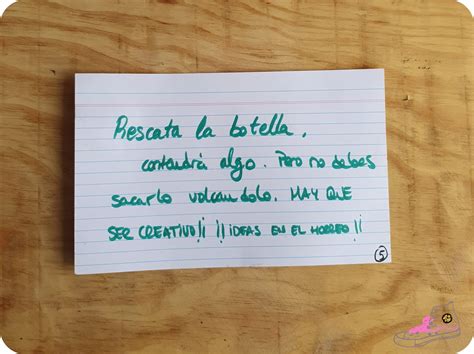 Rescata la botella,
contendrá algo. Pero no debes
sacarlo volcandolo. HAY QUE
SER CREATIVO!¡ ¡¡IDEAS EN EL MORREO!¡
5